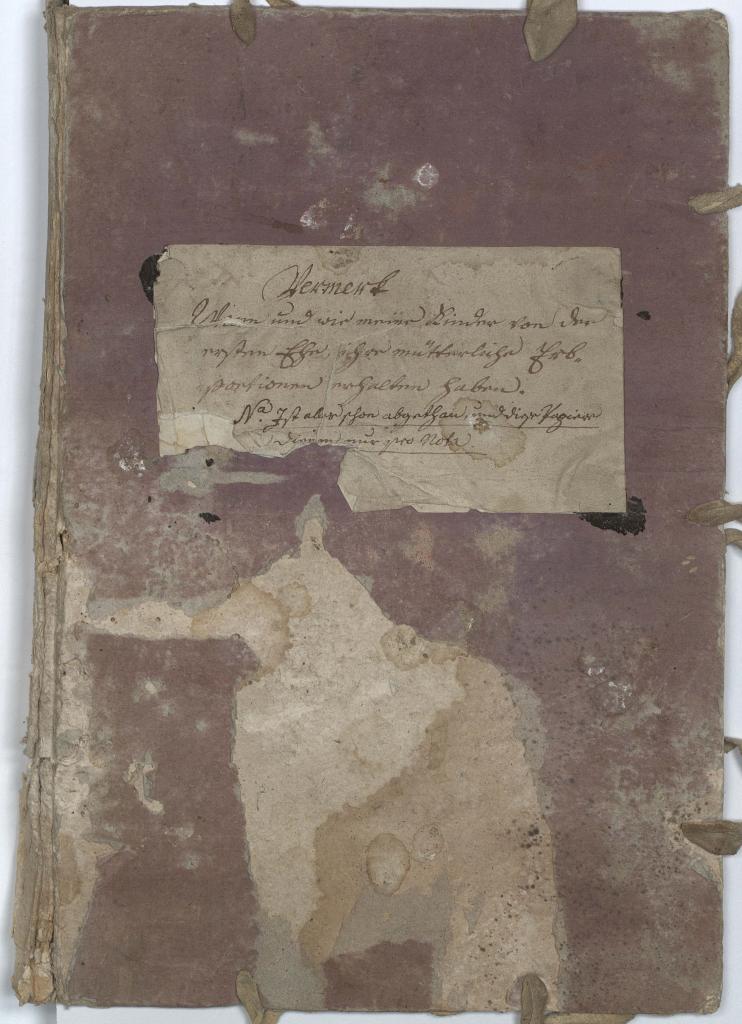 Vermerk
Wann und wie meine Kinder von der
ersten Ehe, ihre mütterliche Erb-
portionen erhalten haben.
Na. Ist aber schon abgethan, und diese Papiere
dienen nur pro Nota